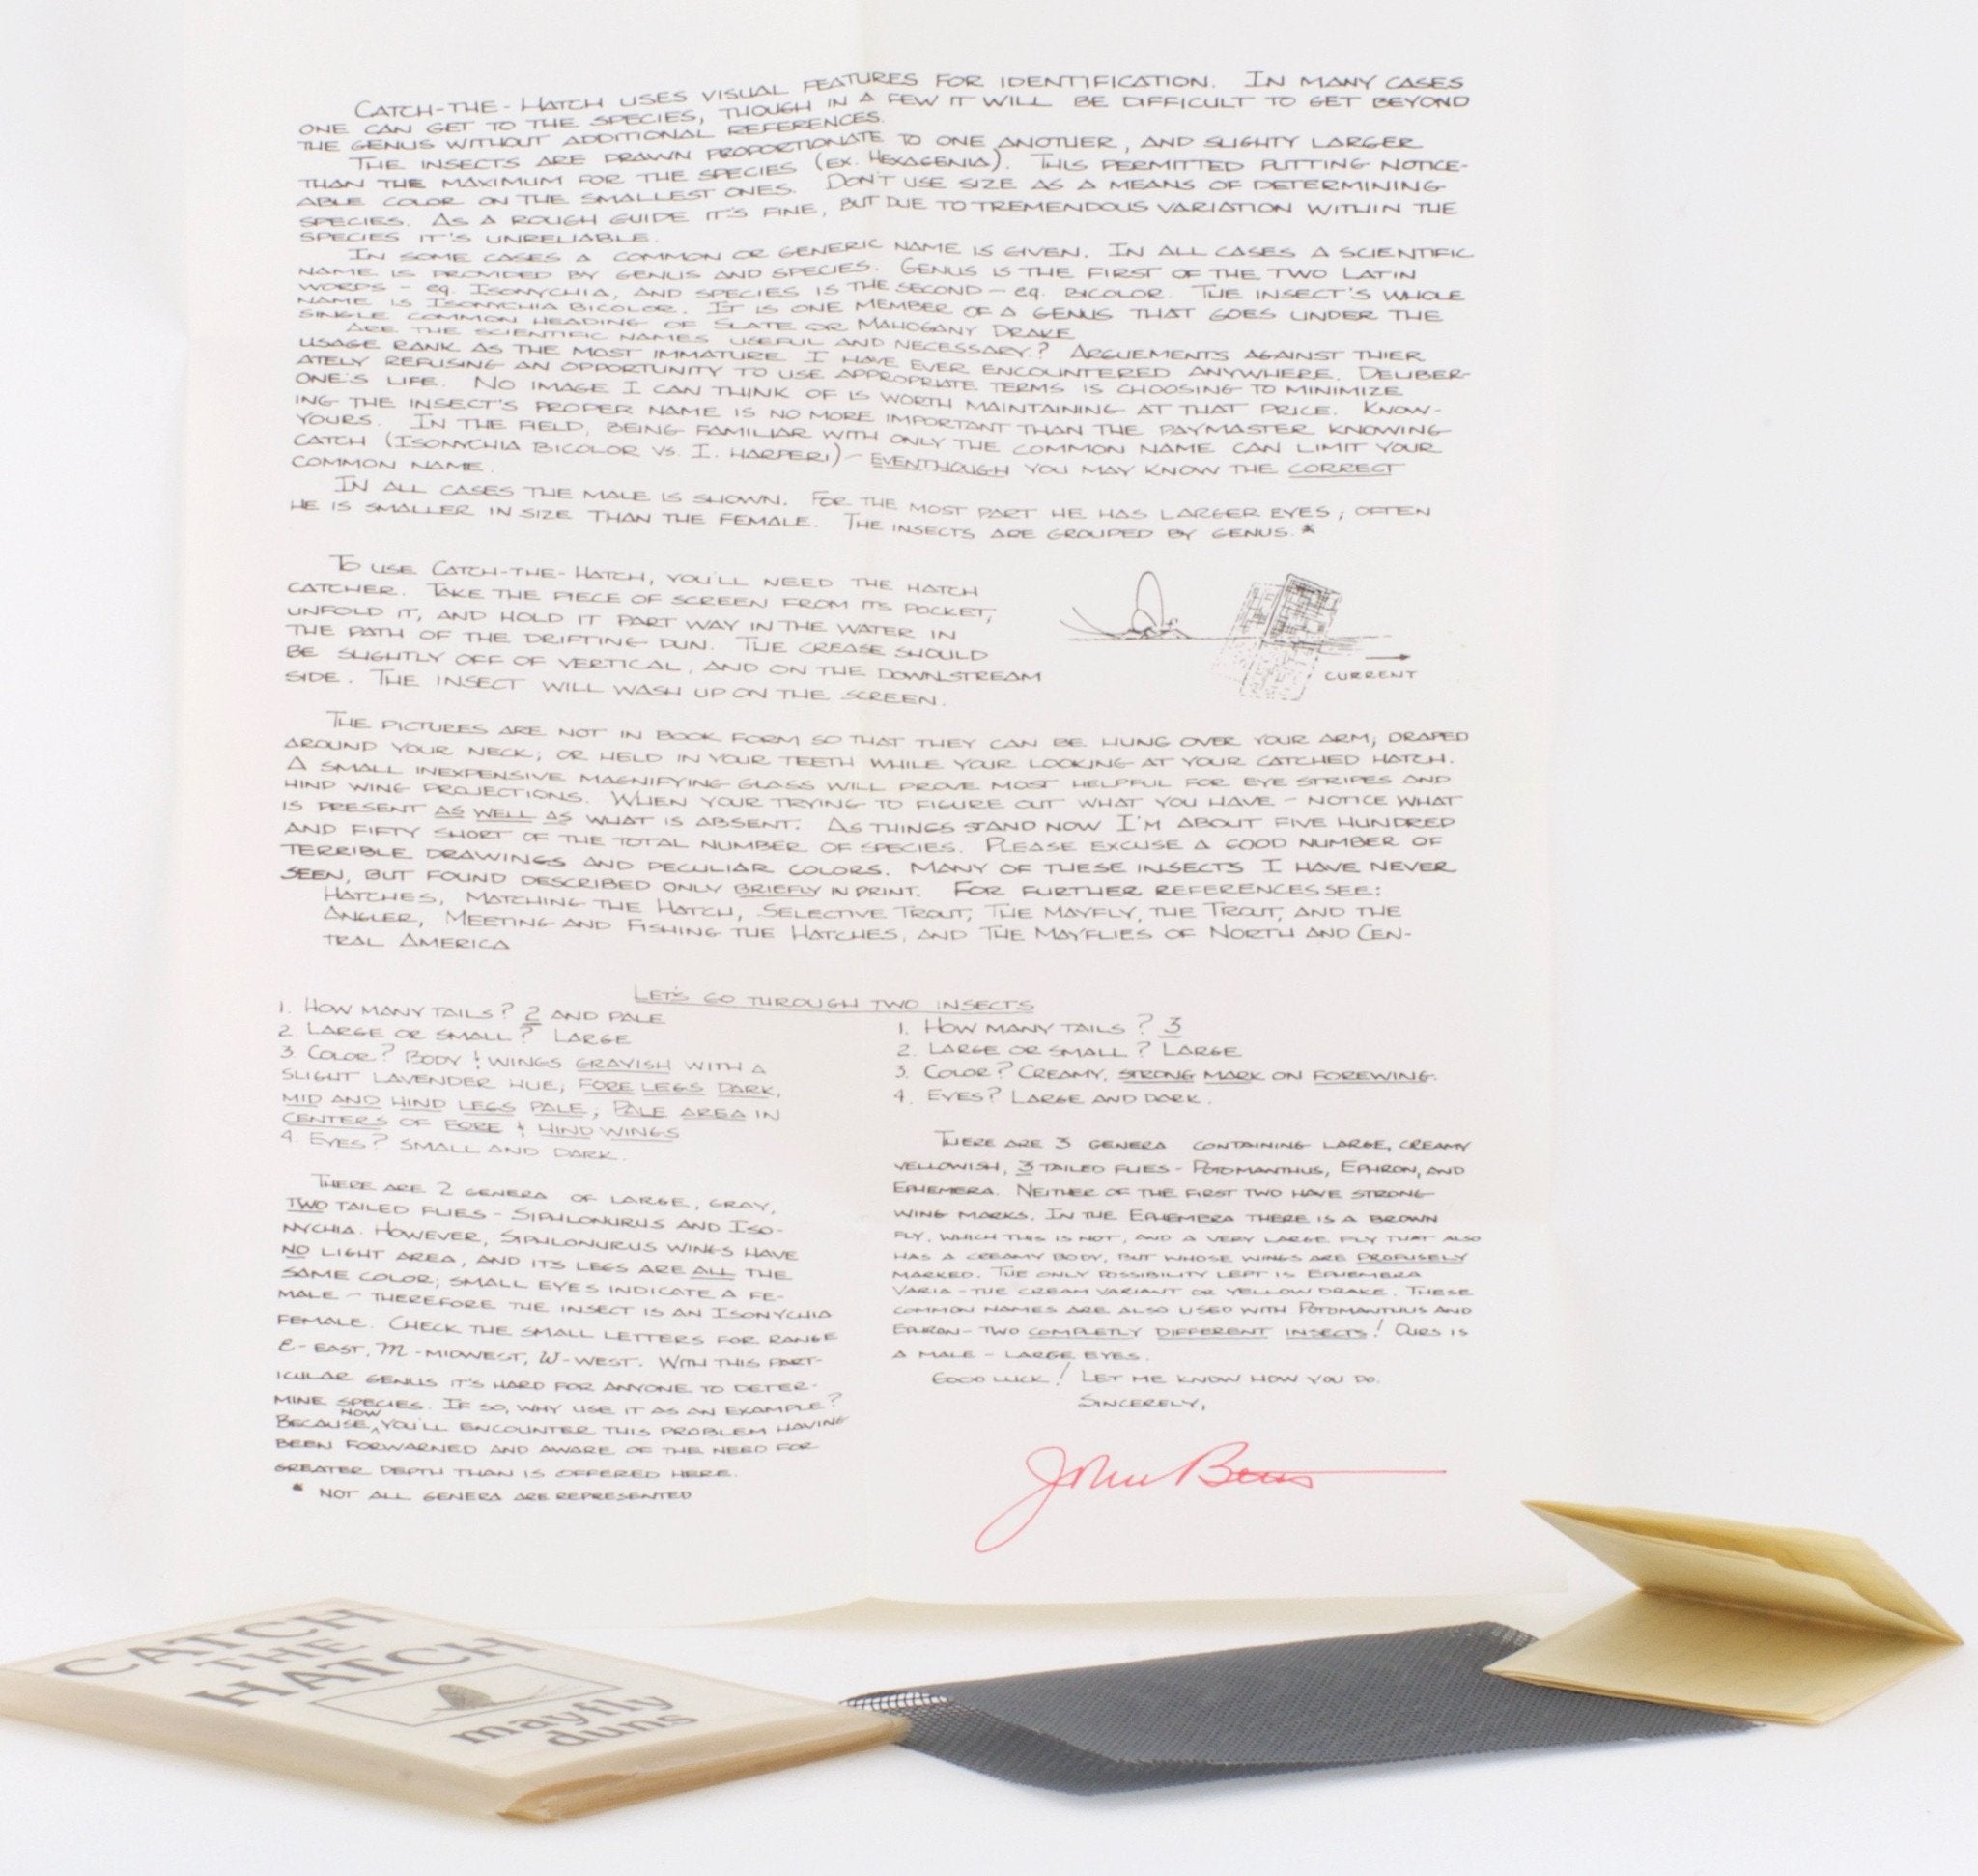 CATCH-THE-HATCH USES VISUAL FEATURES FOR IDENTIFICATION. IN MANY CASES
ONE CAN GET TO THE SPECIES, THOUGH IN A FEW IT WILL BE DIFFICULT TO GET BEYOND
THE GENUS WITHOUT ADDITIONAL REFERENCES.
THE INSECTS ARE DRAWN PROPORTIONATE TO ONE ANOTHER, AND SLIGHTY LARGER
THAN THE MAXIMUM FOR THE SPECIES (EX. HEXAGENIA). THIS PERMITTED PUTTING NOTICE-
ABLE COLOR ON THE SMALLEST ONES. DON'T USE SIZE AS A MEANS OF DETERMINING
SPECIES. AS A ROUGH GUIDE IT'S FINE, BUT DUE TO TREMENDOUS VARIATION WITHIN THE
SPECIES IT'S UNRELIABLE.
IN SOME CASES A COMMON OR GENERIC NAME IS GIVEN. IN ALL CASES A SCIENTIFIC
NAME IS PROVIDED BY GENUS AND SPECIES. GENUS IS THE FIRST OF THE TWO LATIN
WORDS - eg. ISONYCHIA, AND SPECIES IS THE SECOND - eg. BICOLOR. THE INSECT'S WHOLE
NAME IS ISONYCHIA BICOLOR. IT IS ONE MEMBER OF A GENUS THAT GOES UNDER THE
SINGLE COMMON HEADING OF SLATE OR MAHOGANY DRAKE
ARE THE SCIENTIFIC NAMES USEFUL AND NECESSARY? ARGUEMENTS AGAINST THIER
USAGE RANK AS THE MOST IMMATURE I HAVE EVER ENCOUNTERED ANYWHERE. DELIBER-
ATELY REFUSING AN OPPORTUNITY TO USE APPROPRIATE TERMS IS CHOOSING TO MINIMIZE
ONE'S LIFE. NO IMAGE I CAN THINK OF IS WORTH MAINTAINING AT THAT PRICE. KNOW-
ING THE INSECT'S PROPER NAME IS NO MORE IMPORTANT THAN THE PAYMASTER KNOWING
YOURS. IN THE FIELD, BEING FAMILIAR WITH ONLY THE COMMON NAME CAN LIMIT YOUR
CATCH (ISONYCHIA BICOLOR VS. I. HARPERI) - EVENTHOUGH YOU MAY KNOW THE CORRECT
COMMON NAME.
IN ALL CASES THE MALE IS SHOWN. FOR THE MOST PART HE HAS LARGER EYES; OFTEN
HE IS SMALLER IN SIZE THAN THE FEMALE. THE INSECTS ARE GROUPED BY GENUS.*
TO USE CATCH-THE-HATCH, YOU'LL NEED THE HATCH
CATCHER. TAKE THE PIECE OF SCREEN FROM ITS POCKET,
UNFOLD IT, AND HOLD IT PART WAY IN THE WATER IN
THE PATH OF THE DRIFTING DUN. THE CREASE SHOULD
BE SLIGHTLY OFF OF VERTICAL, AND ON THE DOWNSTREAM
SIDE. THE INSECT WILL WASH UP ON THE SCREEN.
CURRENT
THE PICTURES ARE NOT IN BOOK FORM SO THAT THEY CAN BE HUNG OVER YOUR ARM, DRAPED
AROUND YOUR NECK; OR HELD IN YOUR TEETH WHILE YOUR LOOKING AT YOUR CATCHED HATCH.
A SMALL INEXPENSIVE MAGNIFYING GLASS WILL PROVE MOST HELPFUL FOR EYE STRIPES AND
HIND WING PROJECTIONS. WHEN YOUR TRYING TO FIGURE OUT WHAT YOU HAVE - NOTICE WHAT
IS PRESENT AS WELL AS WHAT IS ABSENT. AS THINGS STAND NOW I'M ABOUT FIVE HUNDRED
AND FIFTY SHORT OF THE TOTAL NUMBER OF SPECIES. PLEASE EXCUSE A GOOD NUMBER OF
TERRIBLE DRAWINGS AND PECULIAR COLORS. MANY OF THESE INSECTS I HAVE NEVER
SEEN, BUT FOUND DESCRIBED ONLY BRIEFLY IN PRINT. FOR FURTHER REFERENCES SEE:
HATCHES, MATCHING THE HATCH, SELECTIVE TROUT, THE MAYFLY, THE TROUT, AND THE
ANGLER, MEETING AND FISHING THE HATCHES, AND THE MAYFLIES OF NORTH AND CEN-
TRAL AMERICA
LET'S GO THROUGH TWO INSECTS
1. HOW MANY TAILS? 2 AND PALE
2. LARGE OR SMALL? LARGE
3. COLOR? BODY & WINGS GRAYISH WITH A
SLIGHT LAVENDER HUE; FORE LEGS DARK,
MID AND HIND LEGS PALE; PALE AREA IN
CENTERS OF FORE & HIND WINGS
4. EYES? SMALL AND DARK.
THERE ARE 2 GENERA OF LARGE, GRAY,
TWO TAILED FLIES - SIPHLONURUS AND ISO-
NYCHIA. HOWEVER, SIPHLONURUS WINGS HAVE
NO LIGHT AREA, AND ITS LEGS ARE ALL THE
SAME COLOR; SMALL EYES INDICATE A FE-
MALE - THEREFORE THE INSECT IS AN ISONYCHIA
FEMALE. CHECK THE SMALL LETTERS FOR RANGE
E - EAST, M - MIDWEST, W - WEST. WITH THIS PART-
ICULAR GENUS IT'S HARD FOR ANYONE TO DETER-
MINE SPECIES. IF SO, WHY USE IT AS AN EXAMPLE?
BECAUSE NOW, YOU'LL ENCOUNTER THIS PROBLEM HAVING
BEEN FORWARNED AND AWARE OF THE NEED FOR
GREATER DEPTH THAN IS OFFERED HERE.
* NOT ALL GENERA ARE REPRESENTED
1. HOW MANY TAILS? 3
2. LARGE OR SMALL? LARGE
3. COLOR? CREAMY, STRONG MARK ON FOREWING.
4. EYES? LARGE AND DARK.
THERE ARE 3 GENERA CONTAINING LARGE, CREAMY
YELLOWISH, 3 TAILED FLIES - POTOMANTHUS, EPHRON, AND
EPHEMERA. NEITHER OF THE FIRST TWO HAVE STRONG
WING MARKS. IN THE EPHEMERA THERE IS A BROWN
FLY, WHICH THIS IS NOT, AND A VERY LARGE FLY THAT ALSO
HAS A CREAMY BODY, BUT WHOSE WINGS ARE PROFUSELY
MARKED. THE ONLY POSSIBILITY LEFT IS EPHEMERA
VARIA - THE CREAM VARIANT OR YELLOW DRAKE. THESE
COMMON NAMES ARE ALSO USED WITH POTOMANTHUS AND
EPHRON - TWO COMPLETLY DIFFERENT INSECTS! OURS IS
A MALE - LARGE EYES.
GOOD LUCK! LET ME KNOW HOW YOU DO.
SINCERELY,
John
CATCH
THE
HATCH
mayfly
duns